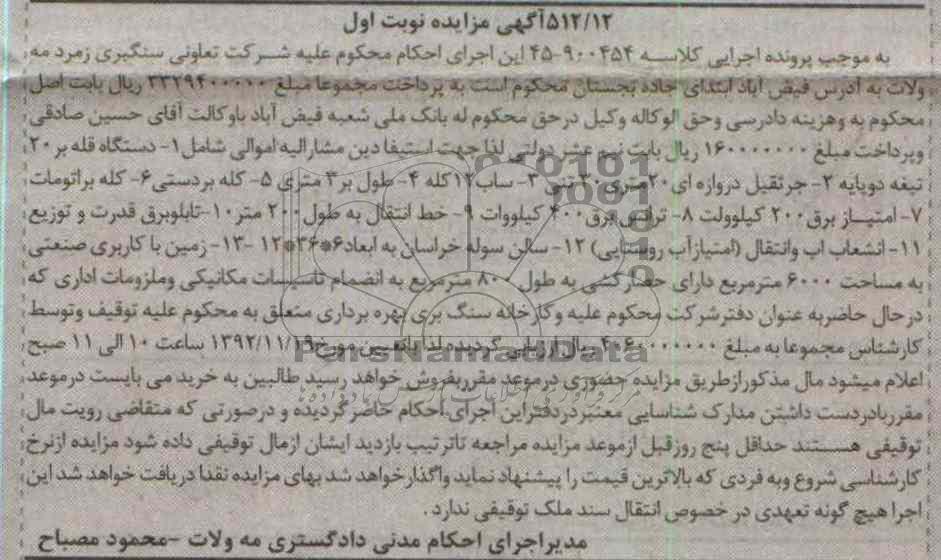 ۵۱۲/۱۲آگهی مزایده نوبت اول
به موجب پرونده اجرایی کلاسه ۹۰۰۴۵۴-۴۵ این اجرای احکام محکوم علیه شرکت تعاونی سنگبری زمرد مه
ولات به آدرس فیض آباد ابتدای جاده بجستان محکوم است به پرداخت مجموعا مبلغ ۳۳۲۹۴۰۰۰۰۰ ریال بابت اصل
محکوم به وهزینه دادرسی وحق الوکاله وکیل درحق محکوم له بانک ملی شعبه فیض آباد باوکالت آقای حسین صادقی
وپرداخت مبلغ ۱۶۰۰۰۰۰۰۰ ریال بابت نیم عشر دولتی لذا جهت استیفا دین مشارالیه اموالی شامل۱- دستگاه قله بر۲۰
تیغه دوپایه ۲- جرثقیل دروازه ای۲۰متری ۳۰ تنی ۳- ساب۱۲کله ۴- طول بر۳ متری ۵- کله بردستی۶- کله براتومات
۷- امتیاز برق۲۰۰ کیلوولت ۸- ترانس برق۴۰۰ کیلووات ۹- خط انتقال به طول۲۰۰ متر۱۰-تابلوبرق قدرت و توزیع
۱۱- انشعاب اب وانتقال (امتیازآب روستایی) ۱۲- سالن سوله خراسان به ابعاد۶*۳۶*۱۲ ۱۳- زمین با کاربری صنعتی
به مساحت ۶۰۰۰ مترمربع دارای حصارکشی به طول ۸۰۰ مترمربع به انضمام تاسیسات مکانیکی وملزومات اداری که
درحال حاضربه عنوان دفترشرکت محکوم علیه وکارخانه سنگ بری بهره برداری متعلق به محکوم علیه توقیف وتوسط
کارشناس مجموعا به مبلغ ۴۰۶۰۰۰۰۰۰۰ ریال ارزیابی گردیده لذا باتعیین مورخ۱۳۹۲/۱۱/۱۹ ساعت ۱۰ الی ۱۱ صبح
اعلام میشود مال مذکورازطریق مزایده حضوری درموعد مقرربفروش خواهد رسید طالبین به خرید می بایست درموعد
مقرربادردست داشتن مدارک شناسایی معتبردردفتراین اجرای احکام حاضرگردیده و درصورتی که متقاضی رویت مال
توقیفی هستند حداقل پنج روزقبل ازموعد مزایده مراجعه تاترتیب بازدید ایشان ازمال توقیفی داده شود مزایده ازنرخ
کارشناسی شروع وبه فردی که بالاترین قیمت را پیشنهاد نماید واگذارخواهد شد بهای مزایده نقدا دریافت خواهد شد این
اجرا هیچ گونه تعهدی در خصوص انتقال سند ملک توقیفی ندارد .
مدیراجرای احکام مدنی دادگستری مه ولات -محمود مصباح
ParsNamadData